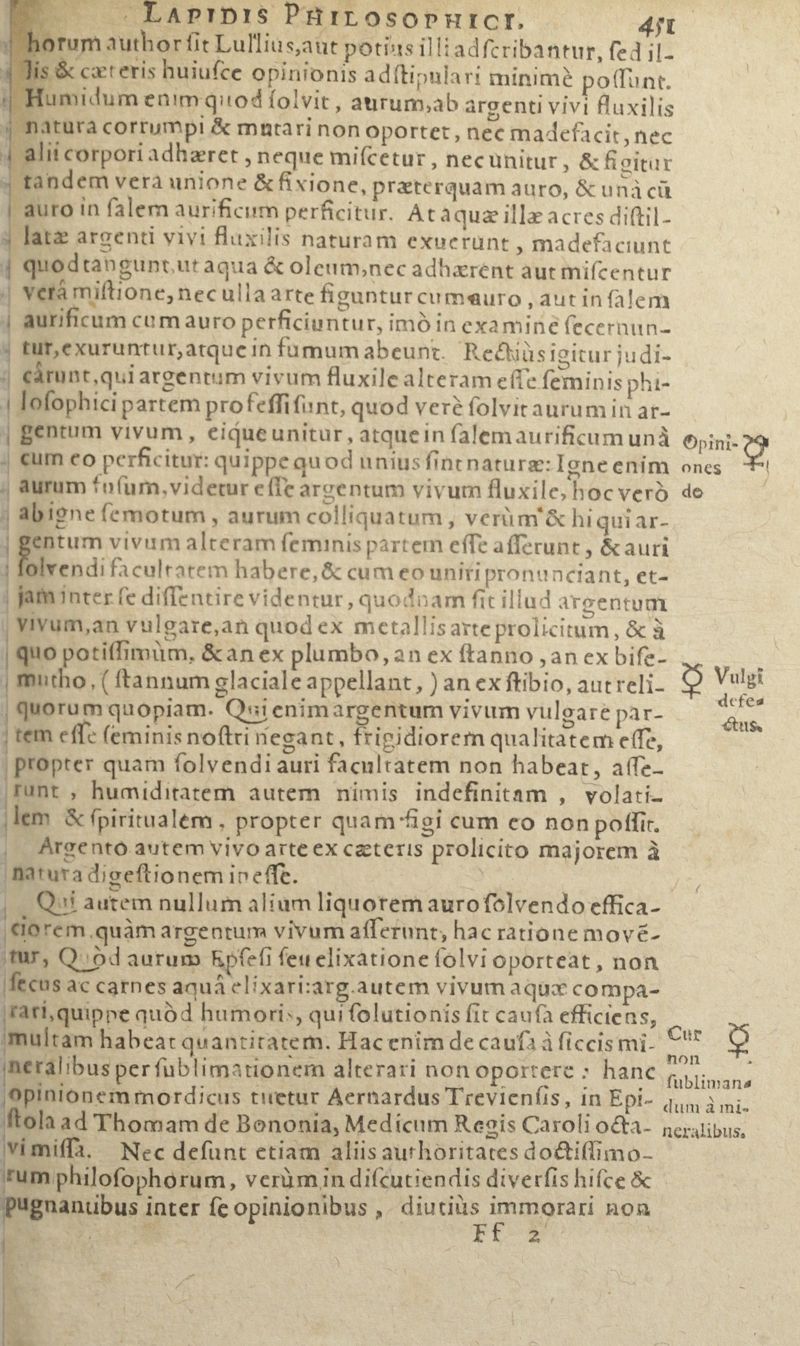 LAPIDIS PHILOSOPHICI. 451
horum author ſit Lullius, aut potius illi adſcribantur, ſed il-
lis & cæteris huiuſce opinionis adſtipulari minimè poſſunt.
Humidum enim quod ſolvit, aurum, ab argenti vivi fluxilis
natura corrumpi & mutari non oportet, nec madefacit, nec
alii corpori adhæret, neque miſcetur, nec unitur, & figitur
tandem vera unione & fixione, præterquam auro, & unà cū
auro in ſalem aurificum perficitur. At aquæ illæ acres diſtil-
latæ argenti vivi fluxilis naturam exuerunt, madefaciunt
quod tangunt, ut aqua & oleum, nec adhærent aut miſcentur
verâ miſtione, nec ulla arte figuntur cum auro, aut in ſalem
aurificum cum auro perficiuntur, imò in examine ſecernun-
tur, exuruntur, atque in fumum abeunt. Rectiùs igitur judi-
cârunt, qui argentum vivum fluxile alteram eſſe ſeminis phi-
loſophici partem profeſſi ſunt, quod verè ſolvit aurum in ar-
gentum vivum, eique unitur, atque in ſalem aurificum unà
cum eo perficitur: quippe quod unius ſint naturæ: Igne enim
aurum fuſum, videtur eſſe argentum vivum fluxile, hoc verò
ab igne ſemotum, aurum colliquatum, verùm & hi qui ar-
gentum vivum alteram ſeminis partem eſſe aſſerunt, & auri
ſolvendi facultatem habere, & cum eo uniri pronunciant, et-
jam inter ſe diſſentire videntur, quodnam ſit illud argentum
vivum, an vulgare, an quod ex metallis arte prolicitum, & à
quo potiſſimùm, & an ex plumbo, an ex ſtanno, an ex biſe-
mutho, (ſtannum glaciale appellant,) an ex ſtibio, aut reli-
quorum quopiam. Qui enim argentum vivum vulgare par-
tem eſſe ſeminis noſtri negant, frigidiorem qualitatem eſſe,
propter quam ſolvendi auri facultatem non habeat, aſſe-
runt, humiditatem autem nimis indefinitam, volati-
lem & ſpiritualem, propter quam figi cum eo non poſſit.
Argento autem vivo arte ex cæteris prolicito majorem à
natura digeſtionem ineſſe.
Qui autem nullum alium liquorem auro ſolvendo effica-
ciorem quàm argentum vivum aſſerunt, hac ratione movē-
tur, Quòd aurum Epſeſi ſeu elixatione ſolvi oporteat, non
ſecus ac carnes aquâ elixari: arg. autem vivum aquæ compa-
rari, quippe quòd humoris, qui ſolutionis ſit cauſa efficiens,
multam habeat quantitatem. Hac enim de cauſâ à ſiccis mi-
neralibus per ſublimationem alterari non oportere: hanc
opinionem mordicus tuetur Aernardus Trevienſis, in Epi-
ſtola ad Thomam de Bononia, Medicum Regis Caroli octa-
vi miſſa. Nec deſunt etiam aliis authoritates doctiſſimo-
rum philoſophorum, verùm in diſcutiendis diverſis hiſce &
pugnantibus inter ſe opinionibus, diutiùs immorari non
Ff 2
Opini-
ones
de
☿ Vulgi
defe-
ctus.
Cur ☿
non
ſubliman-
dum à mi-
neralibus.